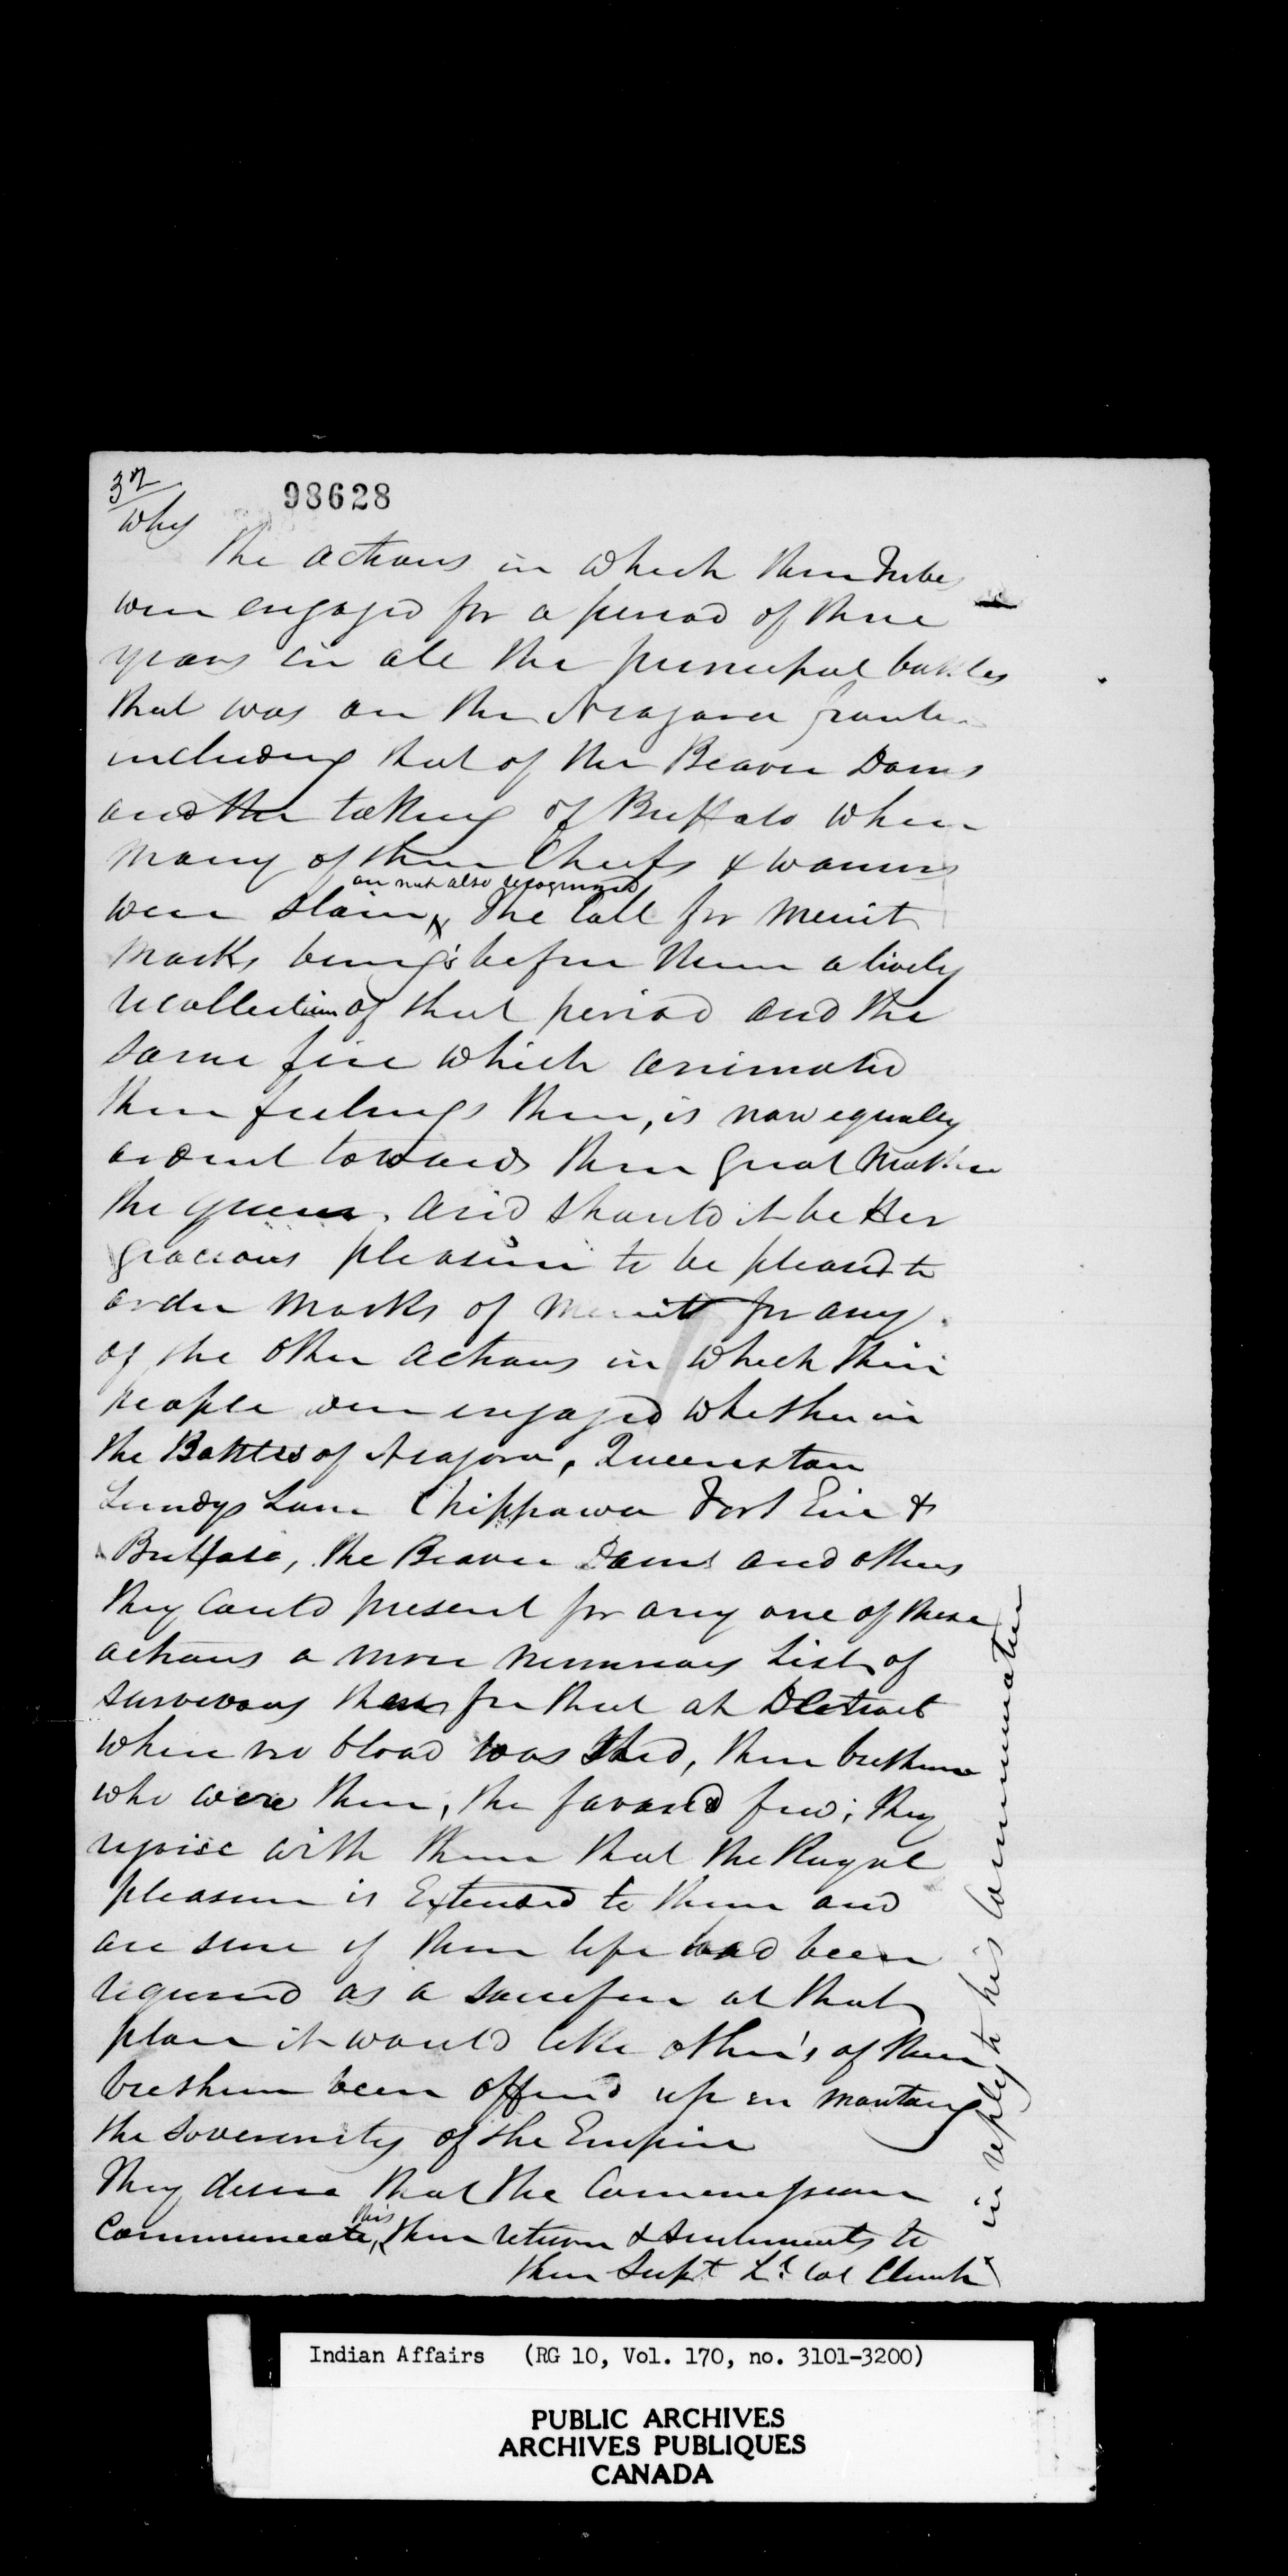 3rd
98628
Why
the actions in which their Tribes
were engaged for a period of three
years in all the principal battles
that was on the Niagara frontier
including that of the Beaver Dams
and the taking of Buffalo when
many of their Chiefs & warriors
are not also recognized
were slain, The Call for merit
marks brings before them a lively
recollection of that period and the
same fire which animated
their feelings then, is now equally
ardent towards their Great Mother
the Queen. and should it be Her
gracious pleasure to be pleased to
order marks of merit for any
of the other actions in which their
people were engaged whether in
the Battles of Niagara, Queenston
Lundys Lane Chippawa Fort Erie &
Buffalo, the Beaver Dams and others
they could present for any one of these
actions a more numerous List of
survivors than for that at Detroit
where no blood was shed, their brethren
who were there, the favored few; they
rejoice with them that the Royal
pleasure is Extended to them and
are sure if their life had been
required as a sacrifice at that
place it would like other's of their
brethren been offered up in mantang
the soverenity of the Empire
They desire that the Commissioner
this
Communicate, their return & sentiments to
their Supt Lt Col Clench
in reply to his Communication
Indian Affairs (RG 10, Vol. 170, no. 3101-3200)
PUBLIC ARCHIVES
ARCHIVES PUBLIQUES
CANADA